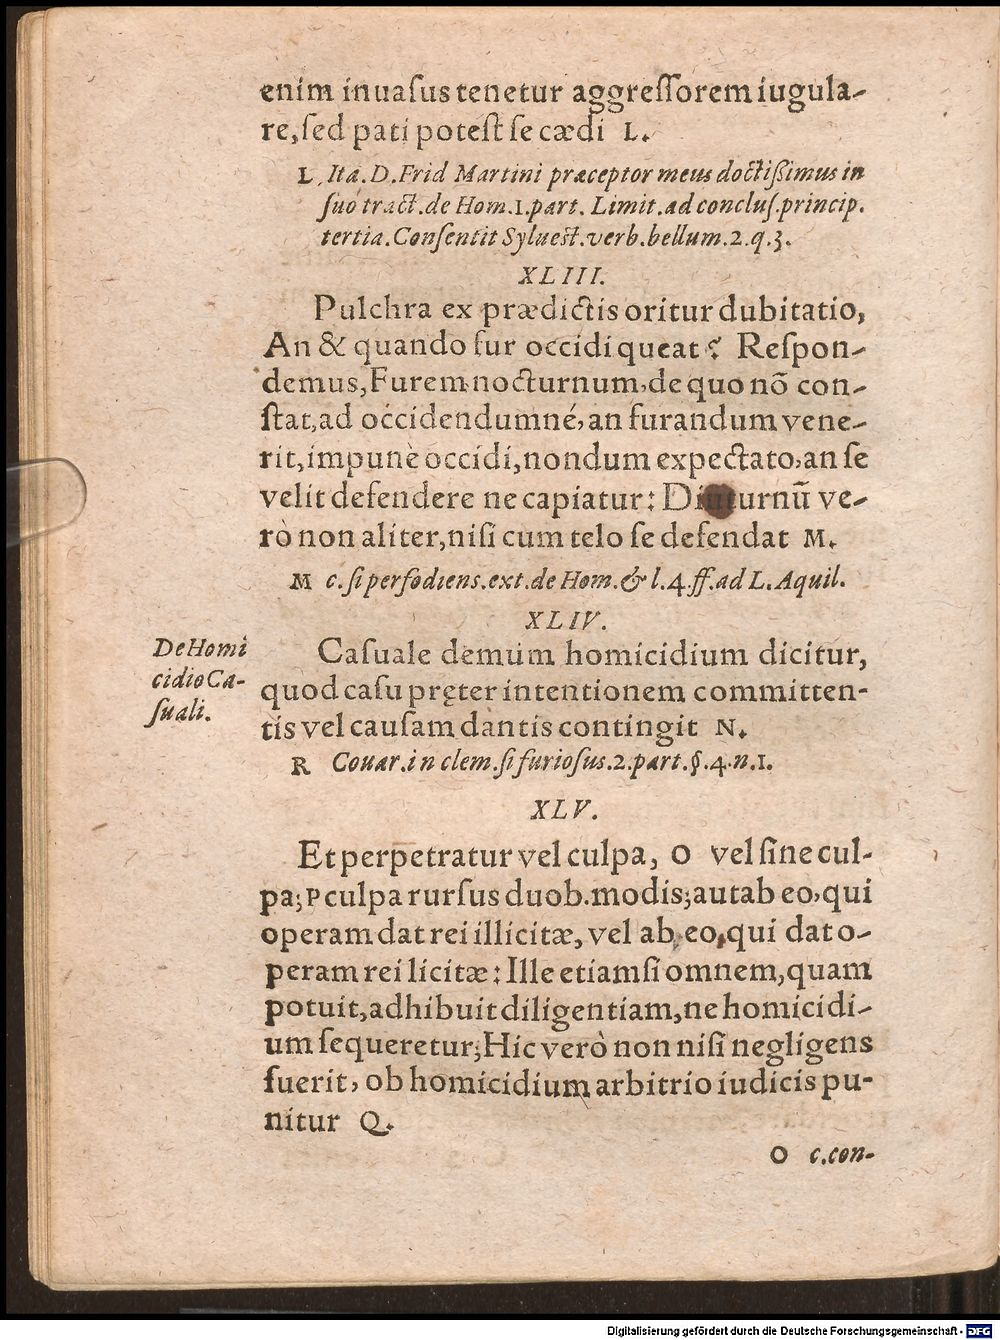 enim inuaſus tenetur aggreſſorem iugula-
re, ſed pati poteſt ſe cædi L.
L Ita. D. Frid Martini præceptor meus doctiſsimus in
ſuo tract. de Hom. 1. part. Limit. ad concluſ. princip.
tertia. Conſentit Sylueſt. verb. bellum. 2. q. 3.
XLIII.
Pulchra ex prædictis oritur dubitatio,
An & quando fur occidi queat? Reſpon-
demus, Furem nocturnum, de quo nõ con-
ſtat, ad occidendumné, an furandum vene-
rit, impunè occidi, nondum expectato, an ſe
velit defendere ne capiatur: Diuturnũ ve-
rò non aliter, niſi cum telo ſe defendat M.
M c. ſi perfodiens. ext. de Hom. & l. 4. ff. ad L. Aquil.
XLIV.
De Homi
cidio Ca-
ſuali.
Caſuale demùm homicidium dicitur,
quod caſu pręter intentionem committen-
tis vel cauſam dantis contingit N.
R Couar. in clem. ſi furioſus. 2. part. §. 4. n. 1.
XLV.
Et perpetratur vel culpa, O vel ſine cul-
pa; P culpa rurſus duob. modis; aut ab eo, qui
operam dat rei illicitæ, vel ab eo, qui dat o-
peram rei licitæ: Ille etiamſi omnem, quam
potuit, adhibuit diligentiam, ne homicidi-
um ſequeretur; Hic verò non niſi negligens
fuerit, ob homicidium arbitrio iudicis pu-
nitur Q.
O c. con-
Digitalisierung gefördert durch die Deutsche Forschungsgemeinschaft - DFG